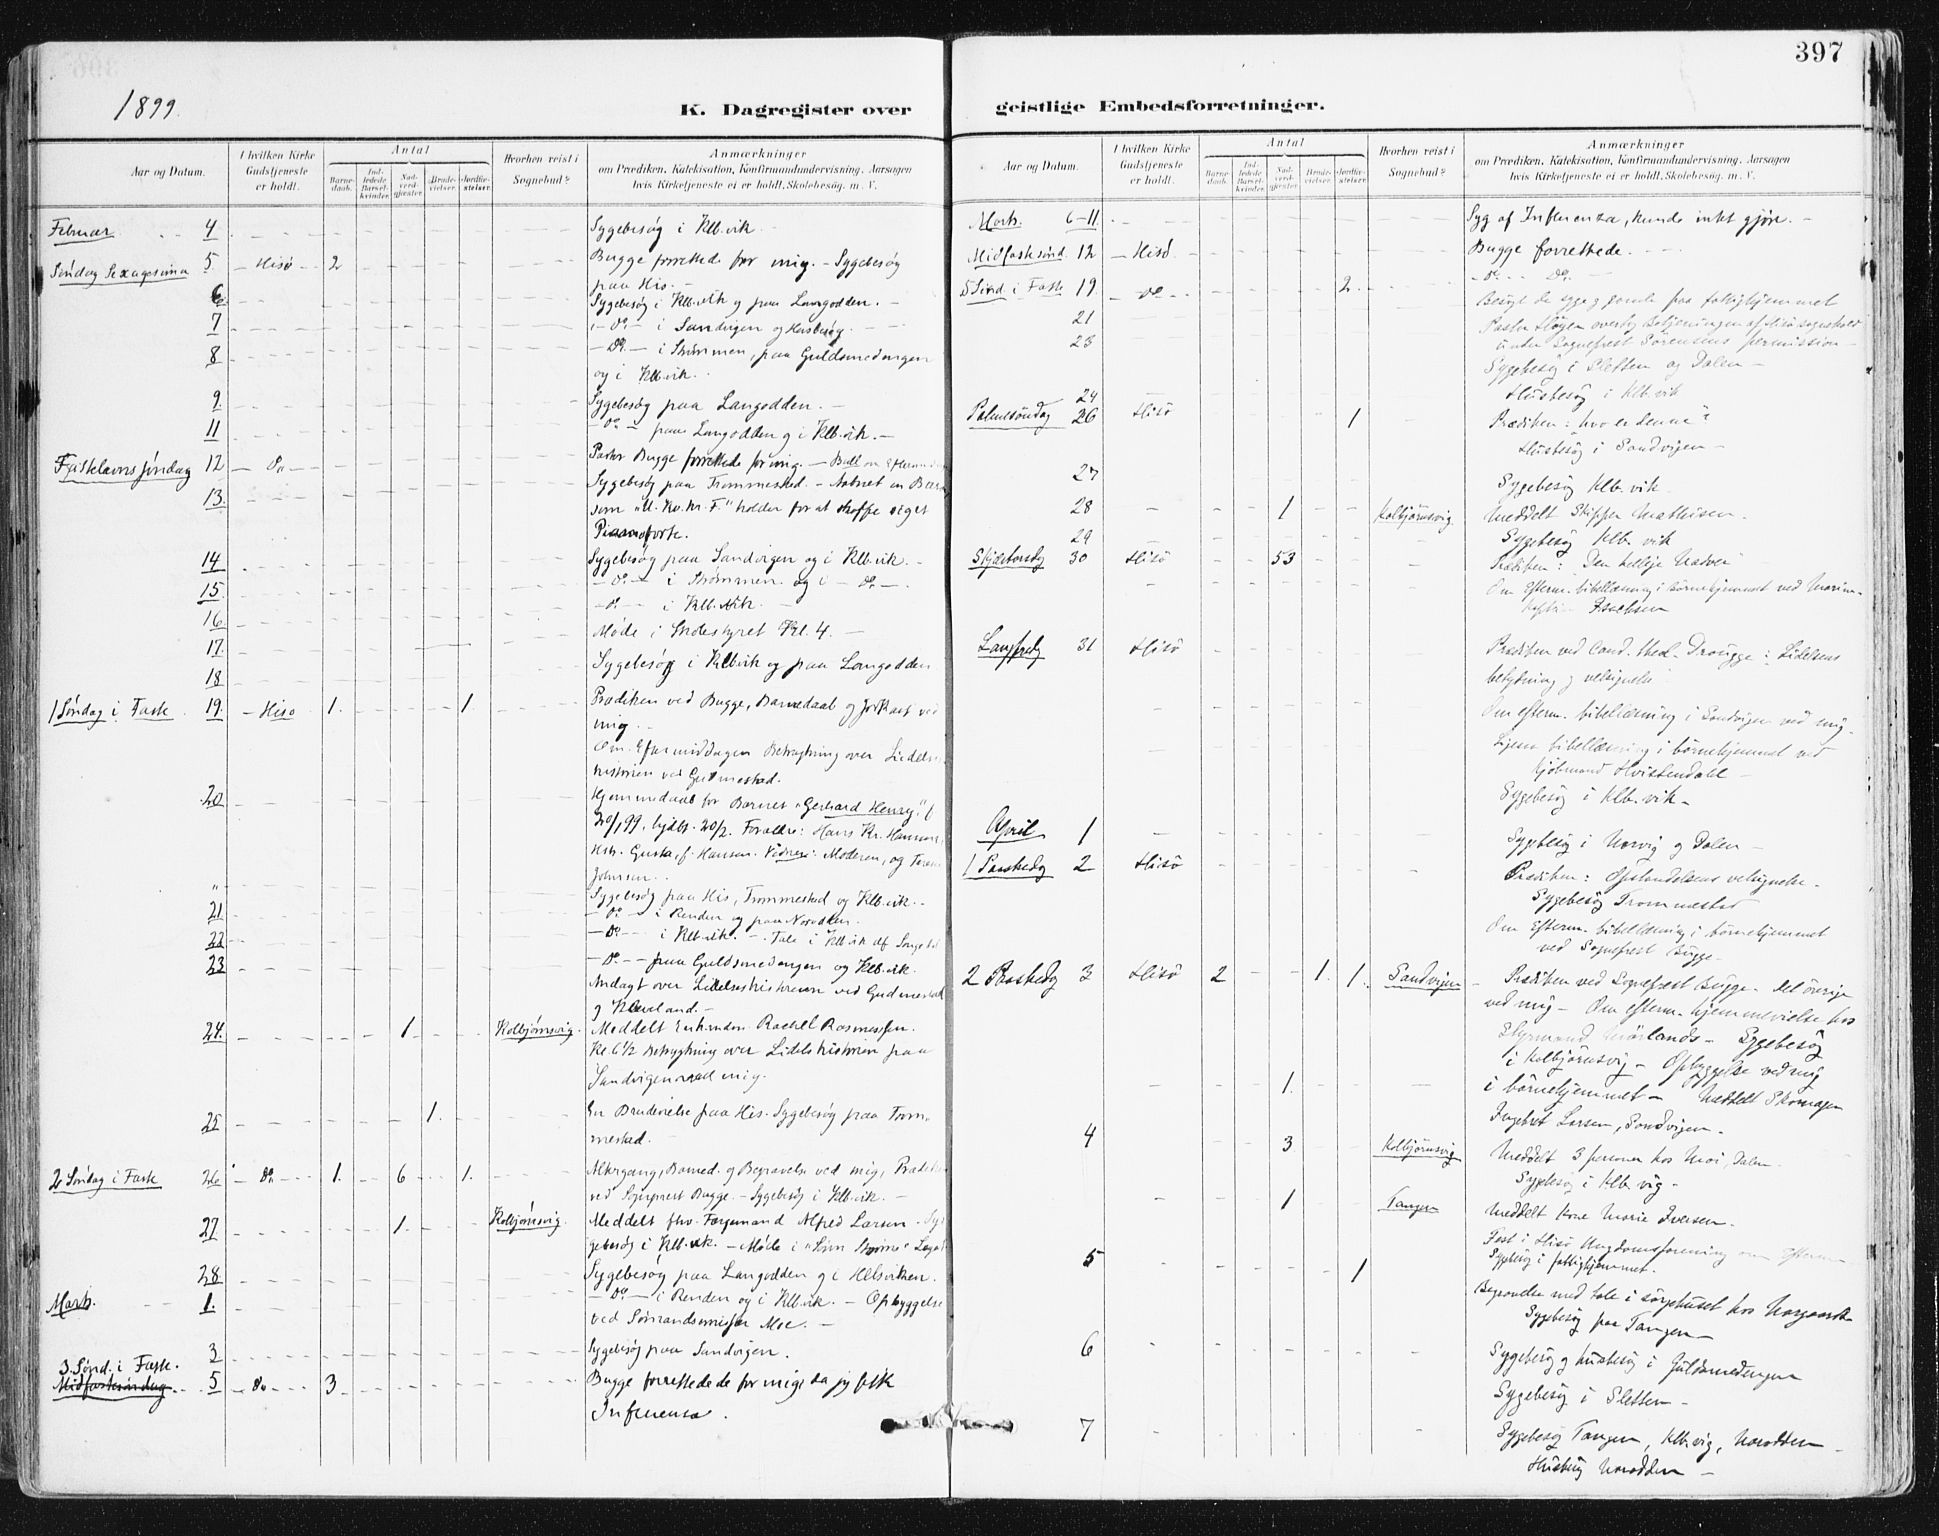 397
1899.
K. Dagregister over
Aar og Datum.
I hvilken Kirke Gudstjeneste er holdt.
Antal
Barnedaab.
Indledede Barselkvinder.
Nadverdgjester.
Brudevielser.
Jordfæstelser.
Hvorhen reist i Sognebud?
Anmærkninger
om Prædiken, Katekisation, Konfirmandundervisning. Aarsagen
hvis Kirketjeneste ei er holdt. Skolebesøg. m. V.
Februar 4 Sygebesøg i Klb.vik.
Søndag Sexagesima 5. Hisø 2 Bugge forrettede for mig. - Sygebesøg
paa His. -
6 Sygebesøg i Klb.vik og paa Langodden. -
7 - Do - i Sandvigen og Husbesøg. -
8 - Do. - i Strømmen, paa Guldsmedengen
og i Klb.vik.
9. Sygebesøg paa Langodden.
11 - Do - paa Langodden og i Klb.vik. -
Fastelavns søndag 12 - Do - Pastor Bugge forrettede for mig. -
13. Sygebesøg paa Trommestad. - Aabnet en Bazar
som "U. Kv. Kr. F." holder for at skaffe eget
Pianoforte.
14 Sygebesøg paa Sandvigen og i Klb.vik. -
15. - Do - i Strømmen og i - Do. -
16 - Do - i Klb.vik. -
17. Møde i Skolestyret Kl. 4. -
18 Sygebesøg i Klb.vik og paa Langodden
1 Søndag i Faste. 19. - Hisø 1. 1. Prædiken ved Bugge, Barnedaab og Jordkast ved
mig. -
Om Eftermiddagen Betragtning over Lidelses
historien ved Gudmestad.
20 Hjemmedaab for Barnet "Gerhard Henry." f.
20/1 99, hjdbt. 20/2. Forældre: Hans Kr. Hansen,
Hstr. Gusta, f. Hansen. Vidner: Moderen, og
Johnsen.
" Sygebesøg paa His, Trommestad og Klb.vik. -
21 - Do - i Renden og paa Norodden.
22 - Do - i Klb.vik. - Tale i Klb.vik af
23 - Do - paa Guldsmedengen og Klb.vik.
Andagt over Lidelseshistorien ved Gudmestad
og Kleveland. -
24. 1 Kolbjørnsvig. Meddelt Enkemdm. Rachel Rasmussen.
Kl. 6 1/2 Betragtning over Lidelseshistorien paa
Sandvigen ved mig.
25 1. En Brudevielse paa His. Sygebesøg paa Trom-
mestad.
2 Søndag i Faste 26 - Do 1. 6 1. Altergang, Barned. og Begravelse ved mig, Prædiken
ved Sogneprest Bugge. - Sygebesøg i Klb.vik. -
27 1. Kolbjørnsvig. Meddelt fhv. Færgemand Alfred Larsen. Sy-
gebesøg i Klb.vik. - Møde i
28 Sygebesøg paa Langodden og i Helsviken.
Marts. 1. - Do - i Renden og i Klb.vik. - Opbyggelse
ved Sømandsmissær Moe. -
3 Sygebesøg paa Sandvigen.
3. Sønd. i Faste.
Midfastesøndag 5 - Do 3 Bugge forrettede for mig da jeg fik
Influenza.
geistlige Embedsforretninger.
Aar og Datum.
I hvilken Kirke Gudstjeneste er holdt.
Antal
Barnedaab.
Indledede Barselkvinder.
Nadverdgjester.
Brudevielser.
Jordfæstelser.
Hvorhen reist i Sognebud?
Anmærkninger
om Prædiken, Katekisation, Konfirmandundervisning. Aarsagen
hvis Kirketjeneste ei er holdt. Skolebesøg. m. V.
Marts. 6-11 Syg af Influenza, kunde intet gjøre. -
Midfastesønd. 12 - Hisø. Bugge forrettede.
5 Sønd. i Faste 19. - Do - 2. - Do. - Do. -
Besøgt de syge og gamle paa fattighjemmet
21 Pastor overtog Betjeningen af Hisö sognekald
23 under Sogneprest Sörensens permission -
Sygebesög i Sletten og Dalen -
24 Husbesög i Klb.vik
Palmesöndag 26 Hisö 1 Prædiken: hvo er denne?
Husbesög i Sandvigen -
27 Sygebesög Klb.vik.
28 1 Kolbjörnsvig. Meddelt Skipper Mathisen.
29 Sygebesög Klb. vik
Skjærtorsdg 30 Hisö 53 Prædiken: Den hellige Nadver
Om Efterm. bibellæsning i börnehjemmet ved
Isachsen
Langfredg 31 Hisö Prædiken ved Cand. theol. Drougge: Lidelsens
betydning og velsignelse
Om efterm. bibellæsning i Sandvigen ved mig.
Ligesaa bibellæsning i börnehjemmet ved
Kjöbmand Hvistendahl -
Sygebesög i Klb.vik -
April 1 Sygebesög i Norvig og Dalen -
1 Paaskedg 2 Hisö Prædiken: Opstandelsens velsignelse.
Sygebesög Trommestad
Om Efterm. bibellæsning i börnehjemmet
ved Sogneprest Bugge -
2 Paaskedg 3 Hisö 2 1. 1. Sandvigen Prædiken ved Sogneprest Bugge. Det övrige
ved mig - Om efterm. hjemmevielse hos
Styrmand Mörlands - Sygebesög
i Kolbjörnsvig - Opbyggelse ved mig
1. i börnehjemmet - Meddelt Skomager
Ingebret Larsen, Sandvigen -
4 3 Kolbjörnsvig Meddelt 3 personer hos Moi, Dalen.
Sygebesög i Klb.vig -
1 Tangen Meddelt kone Marie Iversen.
Fest i Hisö Ungdomsforening om Efterm.
5 1 Sygebesög i fattighjemmet.
Begravelse med tale i sörgehuset hos
Sygebesög paa Tangen -
6 Sygebesög og husbesög i Guldsmedengen
Sygebesög i Sletten -
7 Sygebesög Tangen, Klb.vig, Norodden -
Husbesög Norodden -